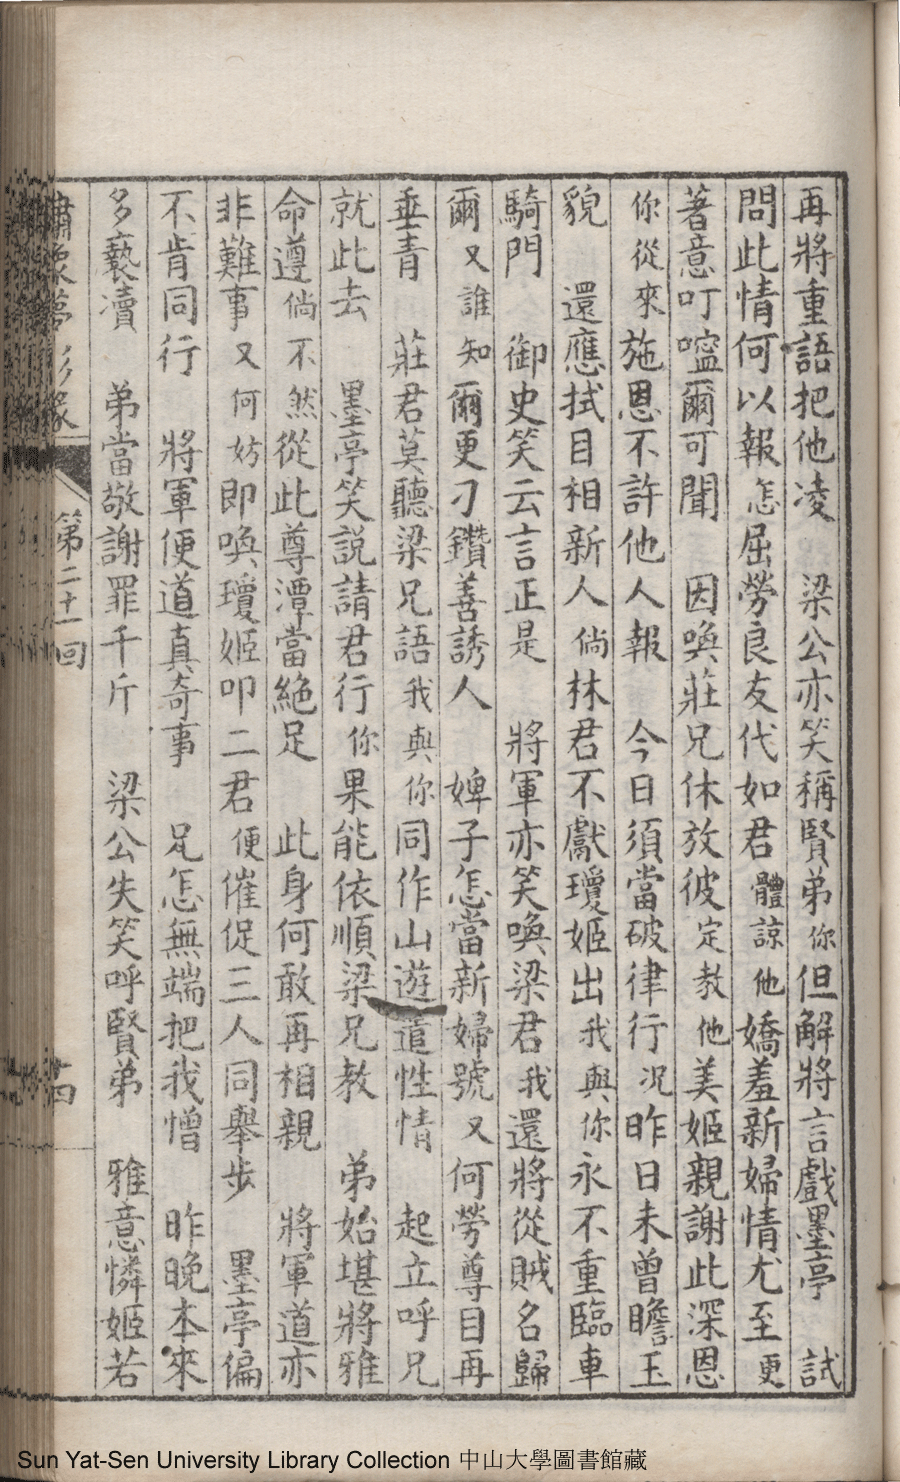 再將重語把他凌　梁公亦笑稱賢弟你但解將言戲墨亭　試
問此情何以報怎屈勞良友代如君體諒他嬌羞新婦情尤至更
著意叮嚀爾可聞　因喚莊兄休放彼定教他美姬親謝此深恩
你從來施恩不許他人報　今日須當破律行况昨日未曾瞻玉
貌　還應拭目相新人倘林君不獻瓊姬出我與你永不重臨車
騎門　御史笑云言正是　將軍亦笑喚梁君我還將從賊名歸
爾又誰知爾更刁鑽善誘人　婢子怎當新婦號又何勞尊目再
垂青　莊君莫聽梁兄語我與你同作山遊遣性情　起立呼兄
就此去　墨亭笑說請君行你果能依順梁兄教　弟始堪將雅
命遵倘不然從此尊潭當絕足　此身何敢再相親　將軍道亦
非難事又何妨即喚瓊姬叩二君便催促三人同舉步　墨亭偏
不肯同行　將軍便道真奇事　兄怎無端把我憎　昨晚本來
多褻瀆　弟當敬謝罪千斤　梁公失笑呼賢弟　雅意憐姬若
第二十一回